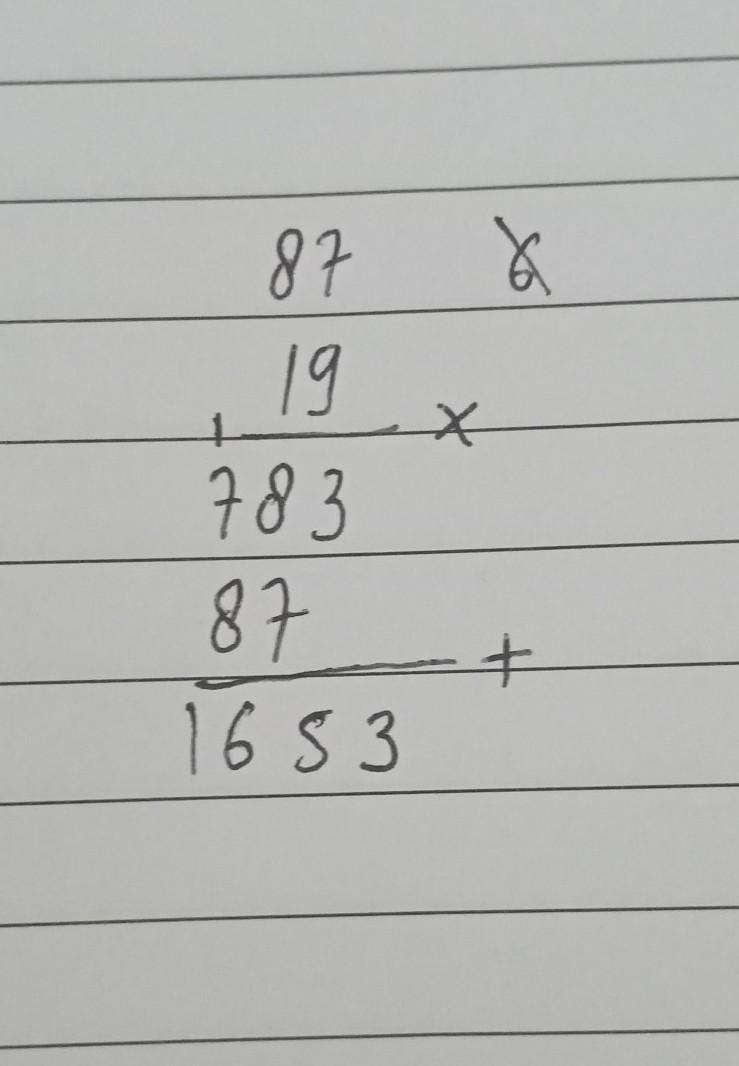 87 6
19
1 ×
783
87
+
1653